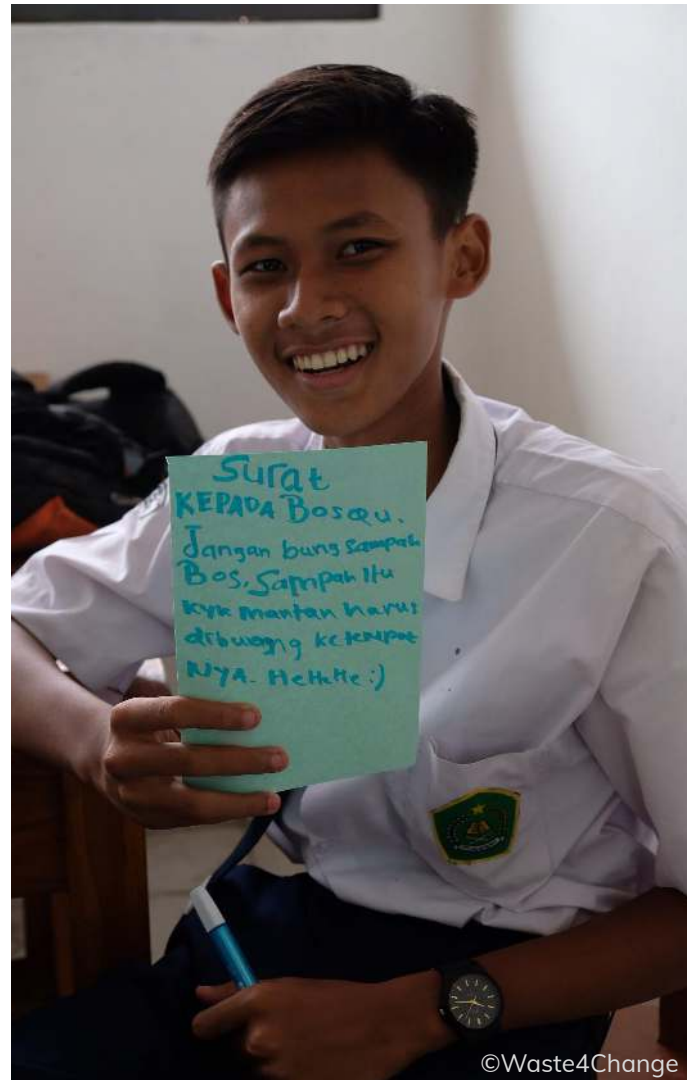 Surat
KEPADA Bosqu.
Jangan bung Sampah
Bos, Sampah Itu
kyk mantan harus
dibuang ketempat
NYA. HeHeHe :)
©Waste4Change